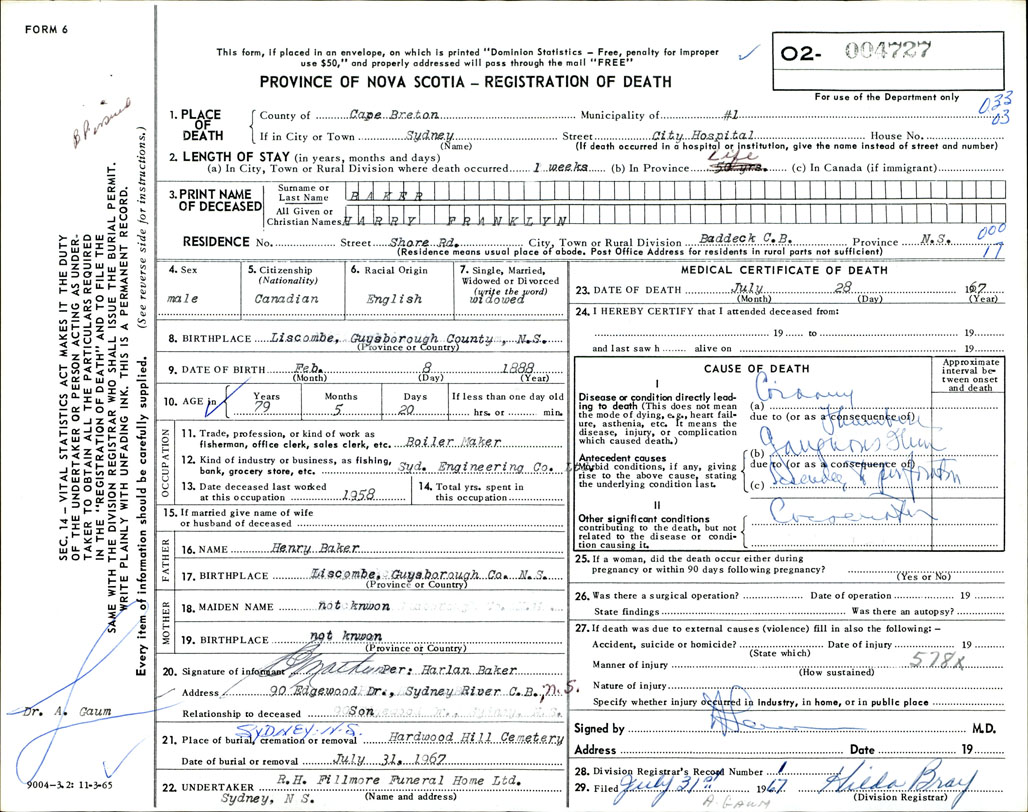 FORM 6
This form, if placed in an envelope, on which is printed "Dominion Statistics – Free, penalty for improper
use $50," and properly addressed will pass through the mail "FREE"
PROVINCE OF NOVA SCOTIA – REGISTRATION OF DEATH
02- 004727
For use of the Department only
033
03
SEC. 14 – VITAL STATISTICS ACT MAKES IT THE DUTY
OF THE UNDERTAKER OR PERSON ACTING AS UNDER-
TAKER TO OBTAIN ALL THE PARTICULARS REQUIRED
IN THE "REGISTRATION OF DEATH" AND TO FILE THE
SAME WITH THE DIVISION REGISTRAR WHO SHALL ISSUE THE BURIAL PERMIT.
WRITE PLAINLY WITH UNFADING INK. THIS IS A PERMANENT RECORD.
Every item of information should be carefully supplied. (See reverse side for instructions.)
1. PLACE OF DEATH
County of Cape Breton Municipality of #1
If in City or Town Sydney Street City Hospital House No.
(Name) (If death occurred in a hospital or institution, give the name instead of street and number)
2. LENGTH OF STAY (in years, months and days)
Life
(a) In City, Town or Rural Division where death occurred 1 weeks (b) In Province 50 yrs. (c) In Canada (if immigrant)
3. PRINT NAME OF DECEASED
Surname or Last Name BAKER
All Given or Christian Names HARRY FRANKLYN
000
17
RESIDENCE No. Street Shore Rd. City, Town or Rural Division Baddeck C.B. Province N.S.
(Residence means usual place of abode. Post Office Address for residents in rural parts not sufficient)
4. Sex
male
5. Citizenship (Nationality)
Canadian
6. Racial Origin
English
7. Single, Married, Widowed or Divorced (write the word)
widowed
8. BIRTHPLACE Liscombe, Guysborough County, N.S.
(Province or Country)
9. DATE OF BIRTH Feb. 8 1888
(Month) (Day) (Year)
10. AGE in Years Months Days If less than one day old
79 5 20 hrs. or min.
OCCUPATION
11. Trade, profession, or kind of work as
fisherman, office clerk, sales clerk, etc. Boiler Maker
12. Kind of industry or business, as fishing,
bank, grocery store, etc. Syd. Engineering Co. Ltd.
13. Date deceased last worked
at this occupation 1958
14. Total yrs. spent in
this occupation
15. If married give name of wife
or husband of deceased
FATHER
16. NAME Henry Baker
17. BIRTHPLACE Liscombe, Guysborough Co. N.S.
(Province or Country)
MOTHER
18. MAIDEN NAME not knwon
19. BIRTHPLACE not knwon
(Province or Country)
20. Signature of informant Per: Harlan Baker
Address 90 Edgewood Dr., Sydney River C.B., N.S.
Relationship to deceased Son
SYDNEY. N.S.
21. Place of burial, cremation or removal Hardwood Hill Cemetery
Date of burial or removal July 31, 1967
22. UNDERTAKER R.H. Fillmore Funeral Home Ltd.
Sydney, N S. (Name and address)
Dr. A. Gaum
9004-3.2: 11-3-65
MEDICAL CERTIFICATE OF DEATH
23. DATE OF DEATH July 28 1967
(Month) (Day) (Year)
24. I HEREBY CERTIFY that I attended deceased from:
19 to 19
and last saw h alive on 19
CAUSE OF DEATH
Approximate interval between onset and death
I
Disease or condition directly leading to death (This does not mean the mode of dying, e.g., heart failure, asthenia, etc. It means the disease, injury, or complication which caused death.)
(a) Coronary
due to (or as a consequence of) Thrombosis
Antecedent causes
Morbid conditions, if any, giving rise to the above cause, stating the underlying condition last.
(b)
due to (or as a consequence of)
(c)
II
Other significant conditions contributing to the death, but not related to the disease or condition causing it.
25. If a woman, did the death occur either during
pregnancy or within 90 days following pregnancy?
(Yes or No)
26. Was there a surgical operation? Date of operation 19
State findings Was there an autopsy?
27. If death was due to external causes (violence) fill in also the following: –
Accident, suicide or homicide? Date of injury 19
(State which)
578X
Manner of injury
(How sustained)
Nature of injury
Specify whether injury occurred in industry, in home, or in public place
Signed by M.D.
Address Date 19
28. Division Registrar's Record Number 1
29. Filed July 31st 1967 Hilda Bray
(Division Registrar)
A. GAUM